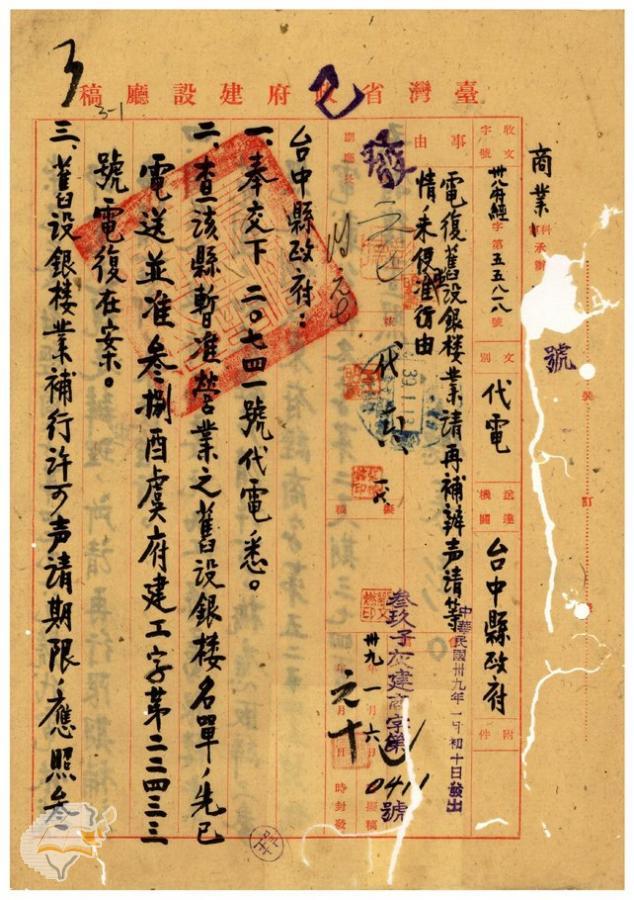 臺灣省政府建設廳稿
3-1
商業
科
承辦
號
裝
訂
收文
字號
卅八府經字第五五八一八號
文別
代電
送達機關
台中縣政府
附件
事由
電復舊設銀楼業請再補辦声請等
情,未便准行由
中華民國卅九年一月初十日發出
叁玖子灰建商字第0411號
卅九年一月六日擬稿
時封發
台中縣政府:
一、奉交下二〇七四一號代電悉。
二、查該縣暫准營業之舊設銀楼名單,先已
電送並准叁捌酉虞府建工字第二二四三三
號電復在案。
三、舊设銀楼業補行許可声請期限,應照叁